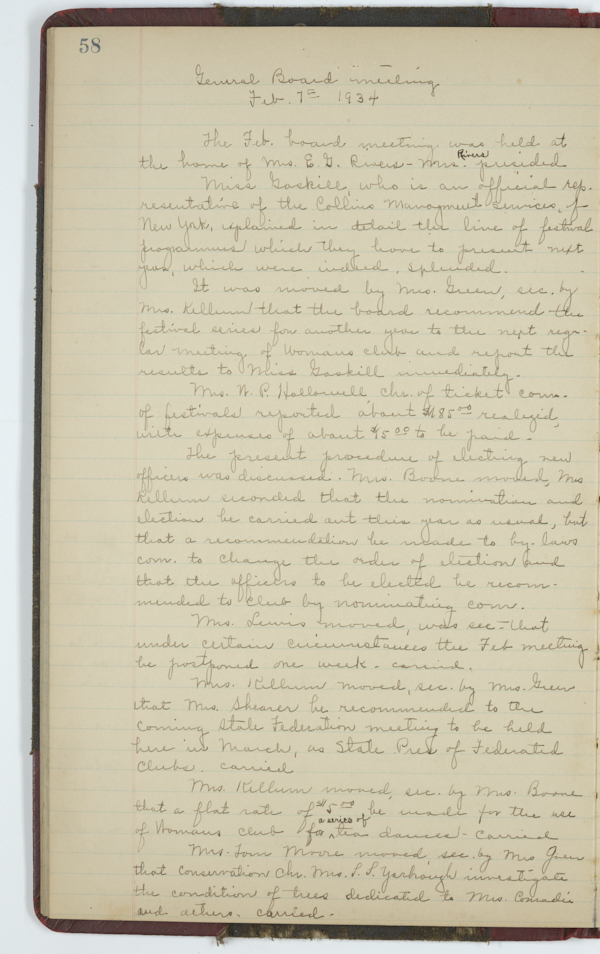 58
General Board meeting
Feb. 7th 1934
The Feb. board meeting was held at
the home of Mrs. E. G. Rivers - Mrs. Rivers presided
Miss Gaskill, who is an official rep-
resentative of the Collins Managment Services, of
New York, explained in detail the line of festival
programmes which they have to present next
year, which were indeed, splended.
It was moved by Mrs. Green, sec. by
Mrs. Killum that the board recommend the
festival series for another year to the next regu-
lar meeting of Womans club and report the
results to Miss Gaskill immediately.
Mrs. W. P. Hollowell chr. of ticket com.
of festivals reported about realized,
with expenses of about to be paid -
The present procedure of electing new
officers was discussed. Mrs. Boone moved, Mrs
Killum seconded that the nomination and
election be carried out this year as usual, but
that a recommendation be made to by-laws
com. to change the order of election and
that the officers to be elected be recom-
mended to club by nominating com.
Mrs. Lewis moved, was sec- that
under certain circumstances the Feb meeting
be postponed one week - carried.
Mrs. Killum moved, sec. by Mrs. Green
that Mrs. Shearer be recommended to the
coming State Federation meeting to be held
here in March, as State Pres of Federated
Clubs. carried
Mrs. Killum moved, sec. by Mrs. Boone
that a flat rate of $5.00 be made for the use
of Womans club for a series of tea dances - carried
Mrs. Tom Moore moved, sec. by Mrs Green
that conservation chr. Mrs. Yarbough investigate
the condition of trees dedicated to Mrs.
and others. carried.